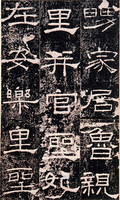 舅家居魯親
里并官聖妃
在安樂里聖